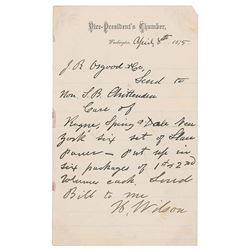 Vice-President's Chamber,
Washington, April 8th 1875
J. R. Osgood & Co,
Send to
Hon S. B. Chittenden
Care of
New
York six set of Slave
Power — Put up in
six packages of 1st & 2nd
Volumes each. Send
Bill to me
H. Wilson